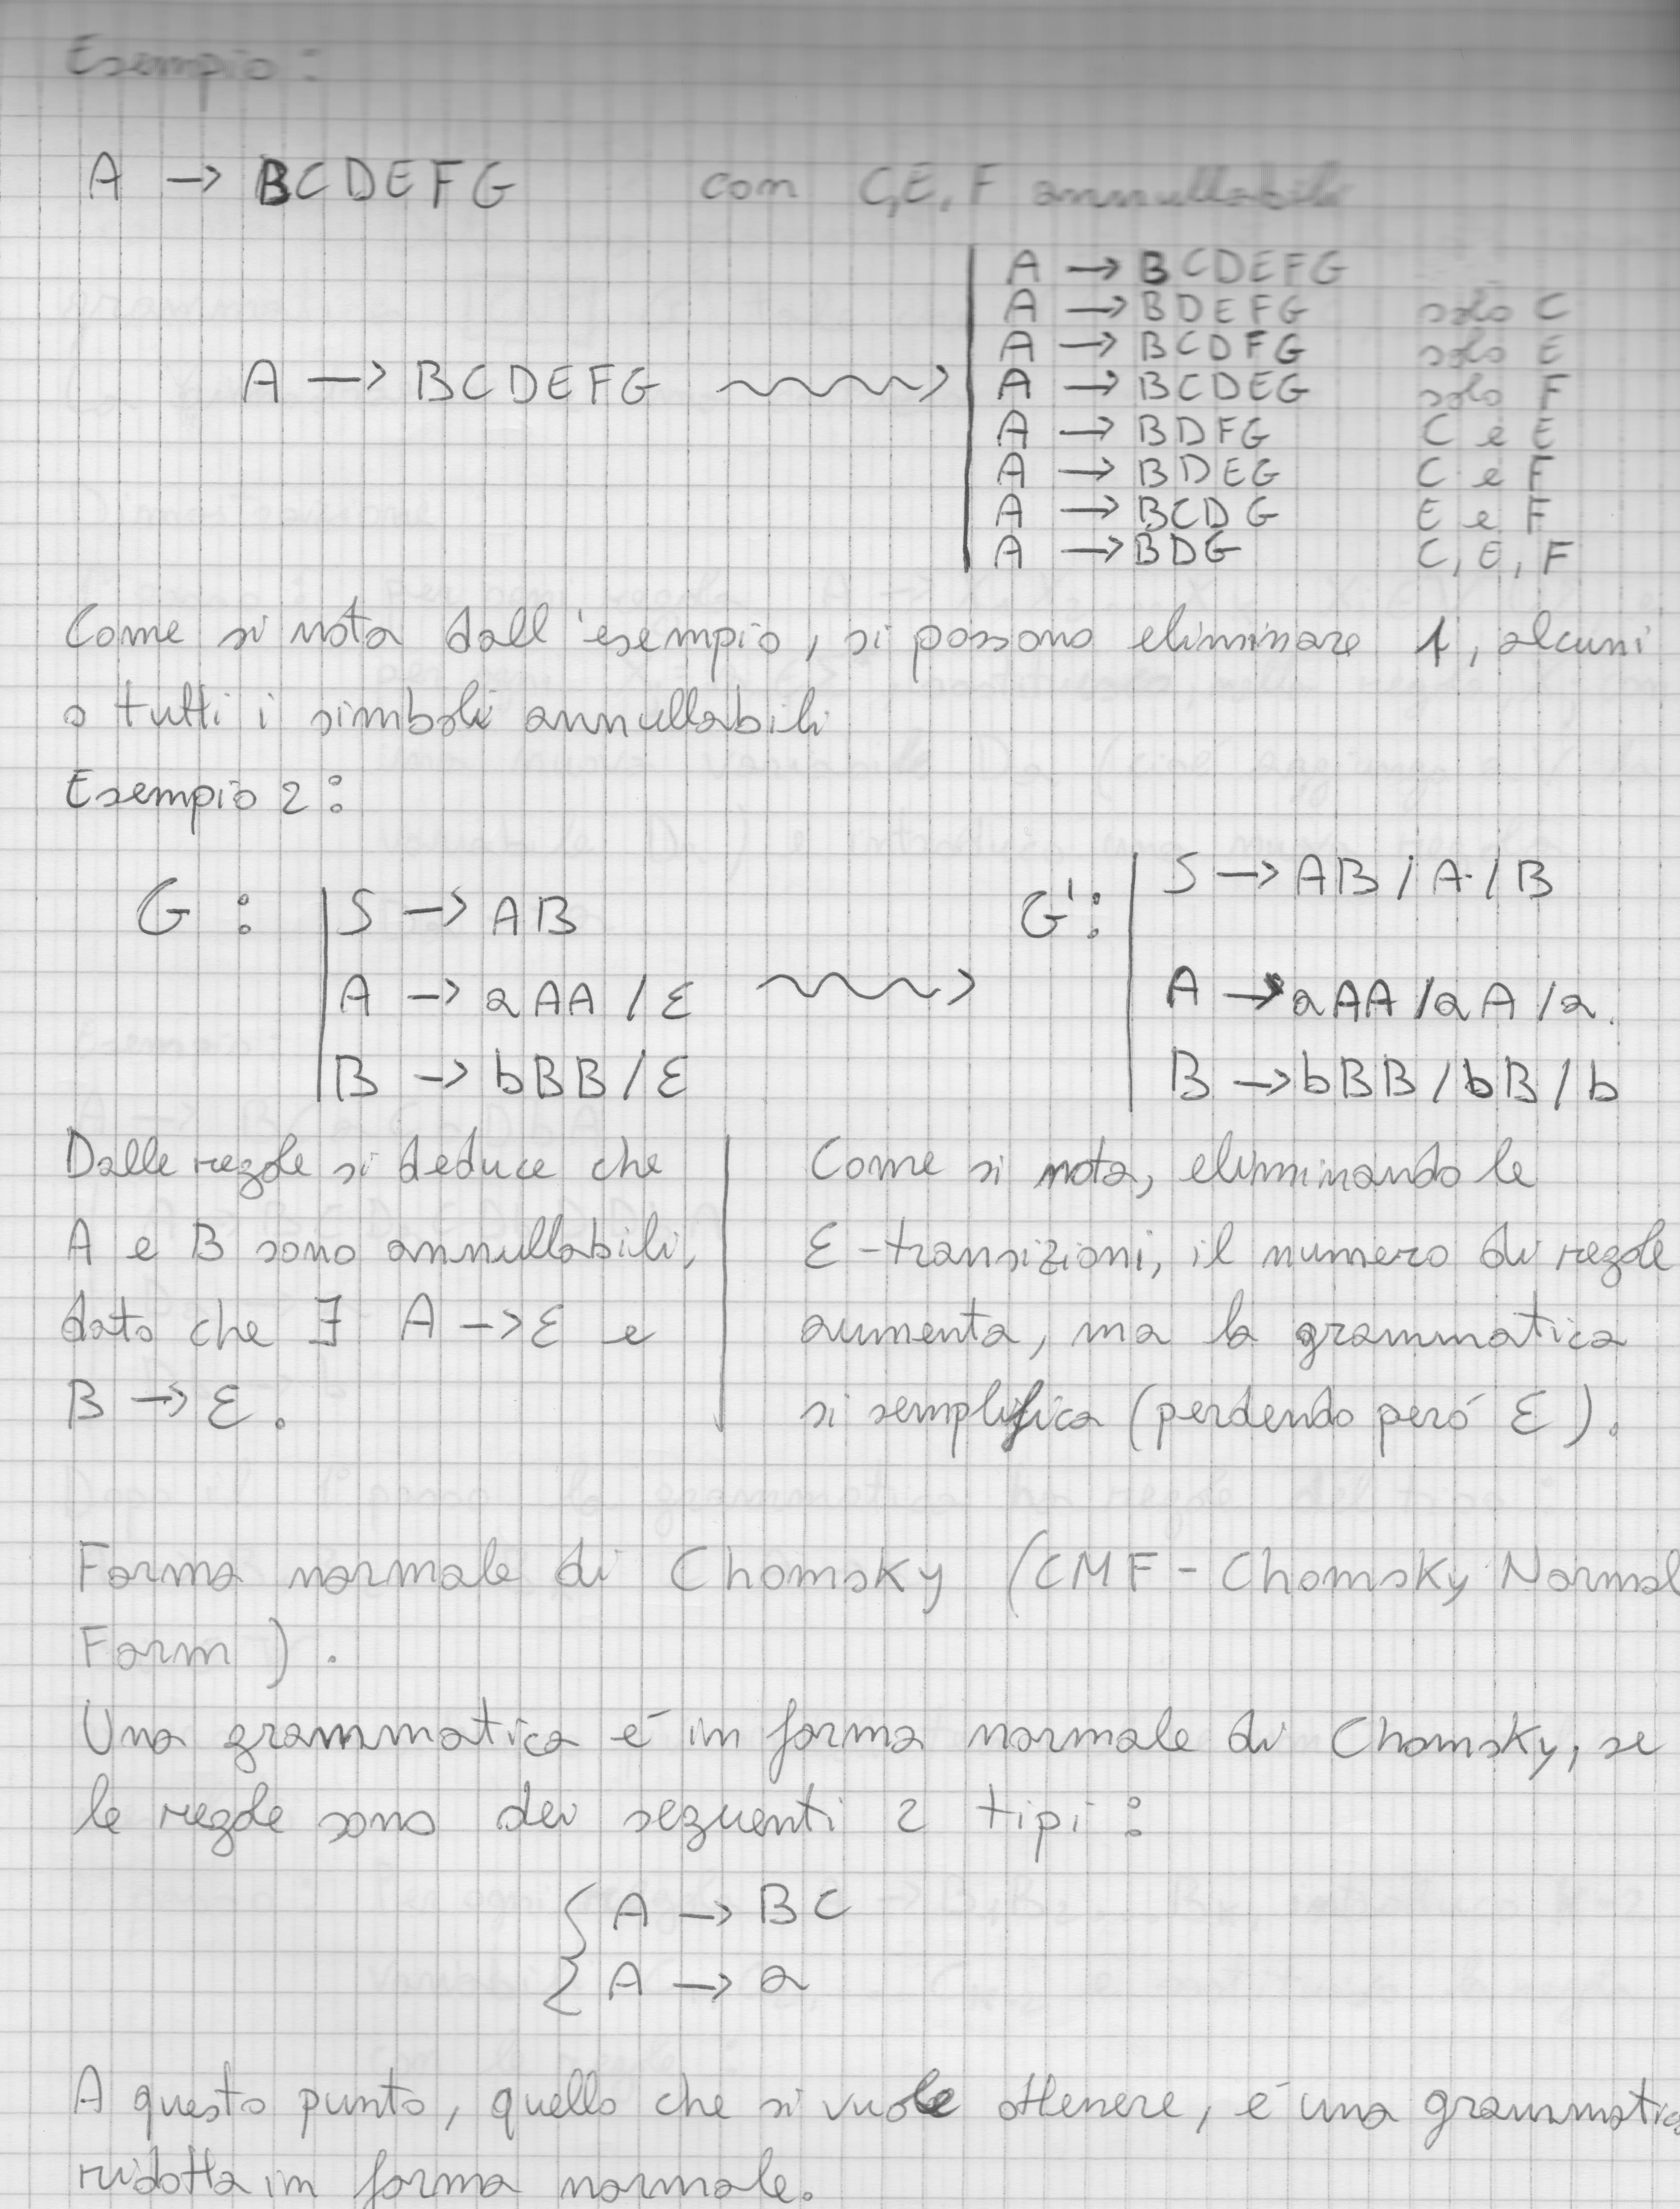 Esempio :
A → BCDEFG con C,E,F annullabile
A → BCDEFG
A → BDEFG solo C
A → BCDFG solo E
A → BCDEFG A → BCDEG solo F
A → BDFG C e E
A → BDEG C e F
A → BCDG E e F
A → BDG C, E, F
Come si nota dall'esempio, si possono eliminare 1, alcuni
o tutti i simboli annullabili
Esempio 2 :
G : S → AB G' : S → AB / A / B
A → aAA / ε A → aAA / aA / a
B → bBB / ε B → bBB / bB / b
Dalle regole si deduce che
A e B sono annullabili,
dato che ∃ A → ε e
B → ε .
Come si nota, eliminando le
ε-transizioni, il numero di regole
aumenta, ma la grammatica
si semplifica (perdendo peró ε ).
Forma normale di Chomsky (CMF - Chomsky Normal
Form ) .
Una grammatica é in forma normale di Chomsky, se
le regole sono dei seguenti 2 tipi :
A → BC
A → a
A questo punto, quello che si vuole ottenere, é una grammatica
ridotta in forma normale.